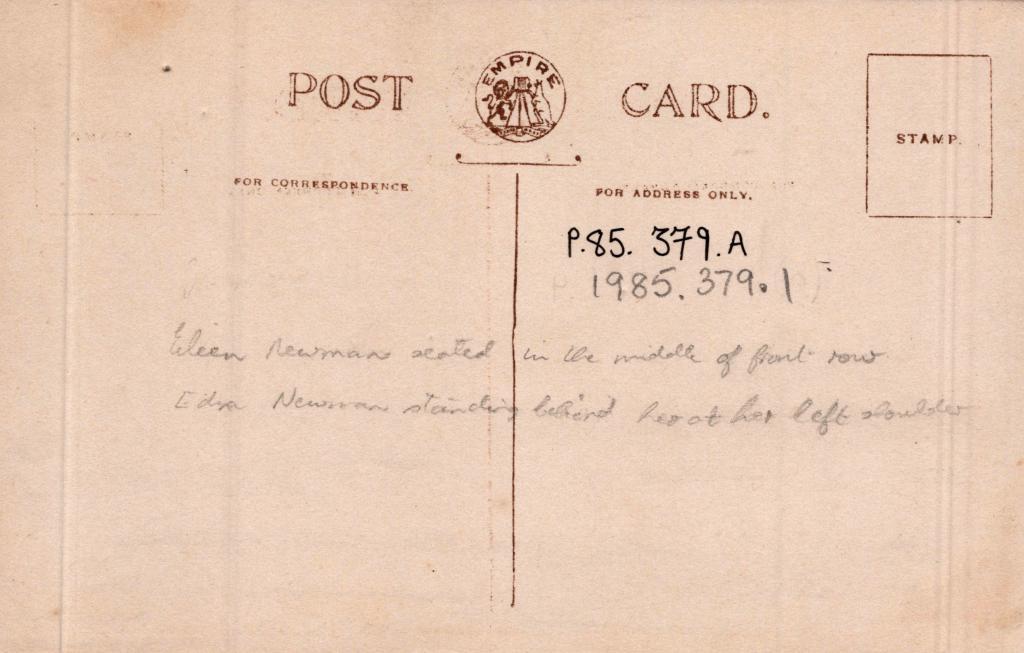 POST EMPIRE CARD.
STAMP.
FOR CORRESPONDENCE.
FOR ADDRESS ONLY.
P.85. 379.A
1985.379.1
Eileen Newman seated in the middle of front row
Edna Newman standing behind her at her left shoulder